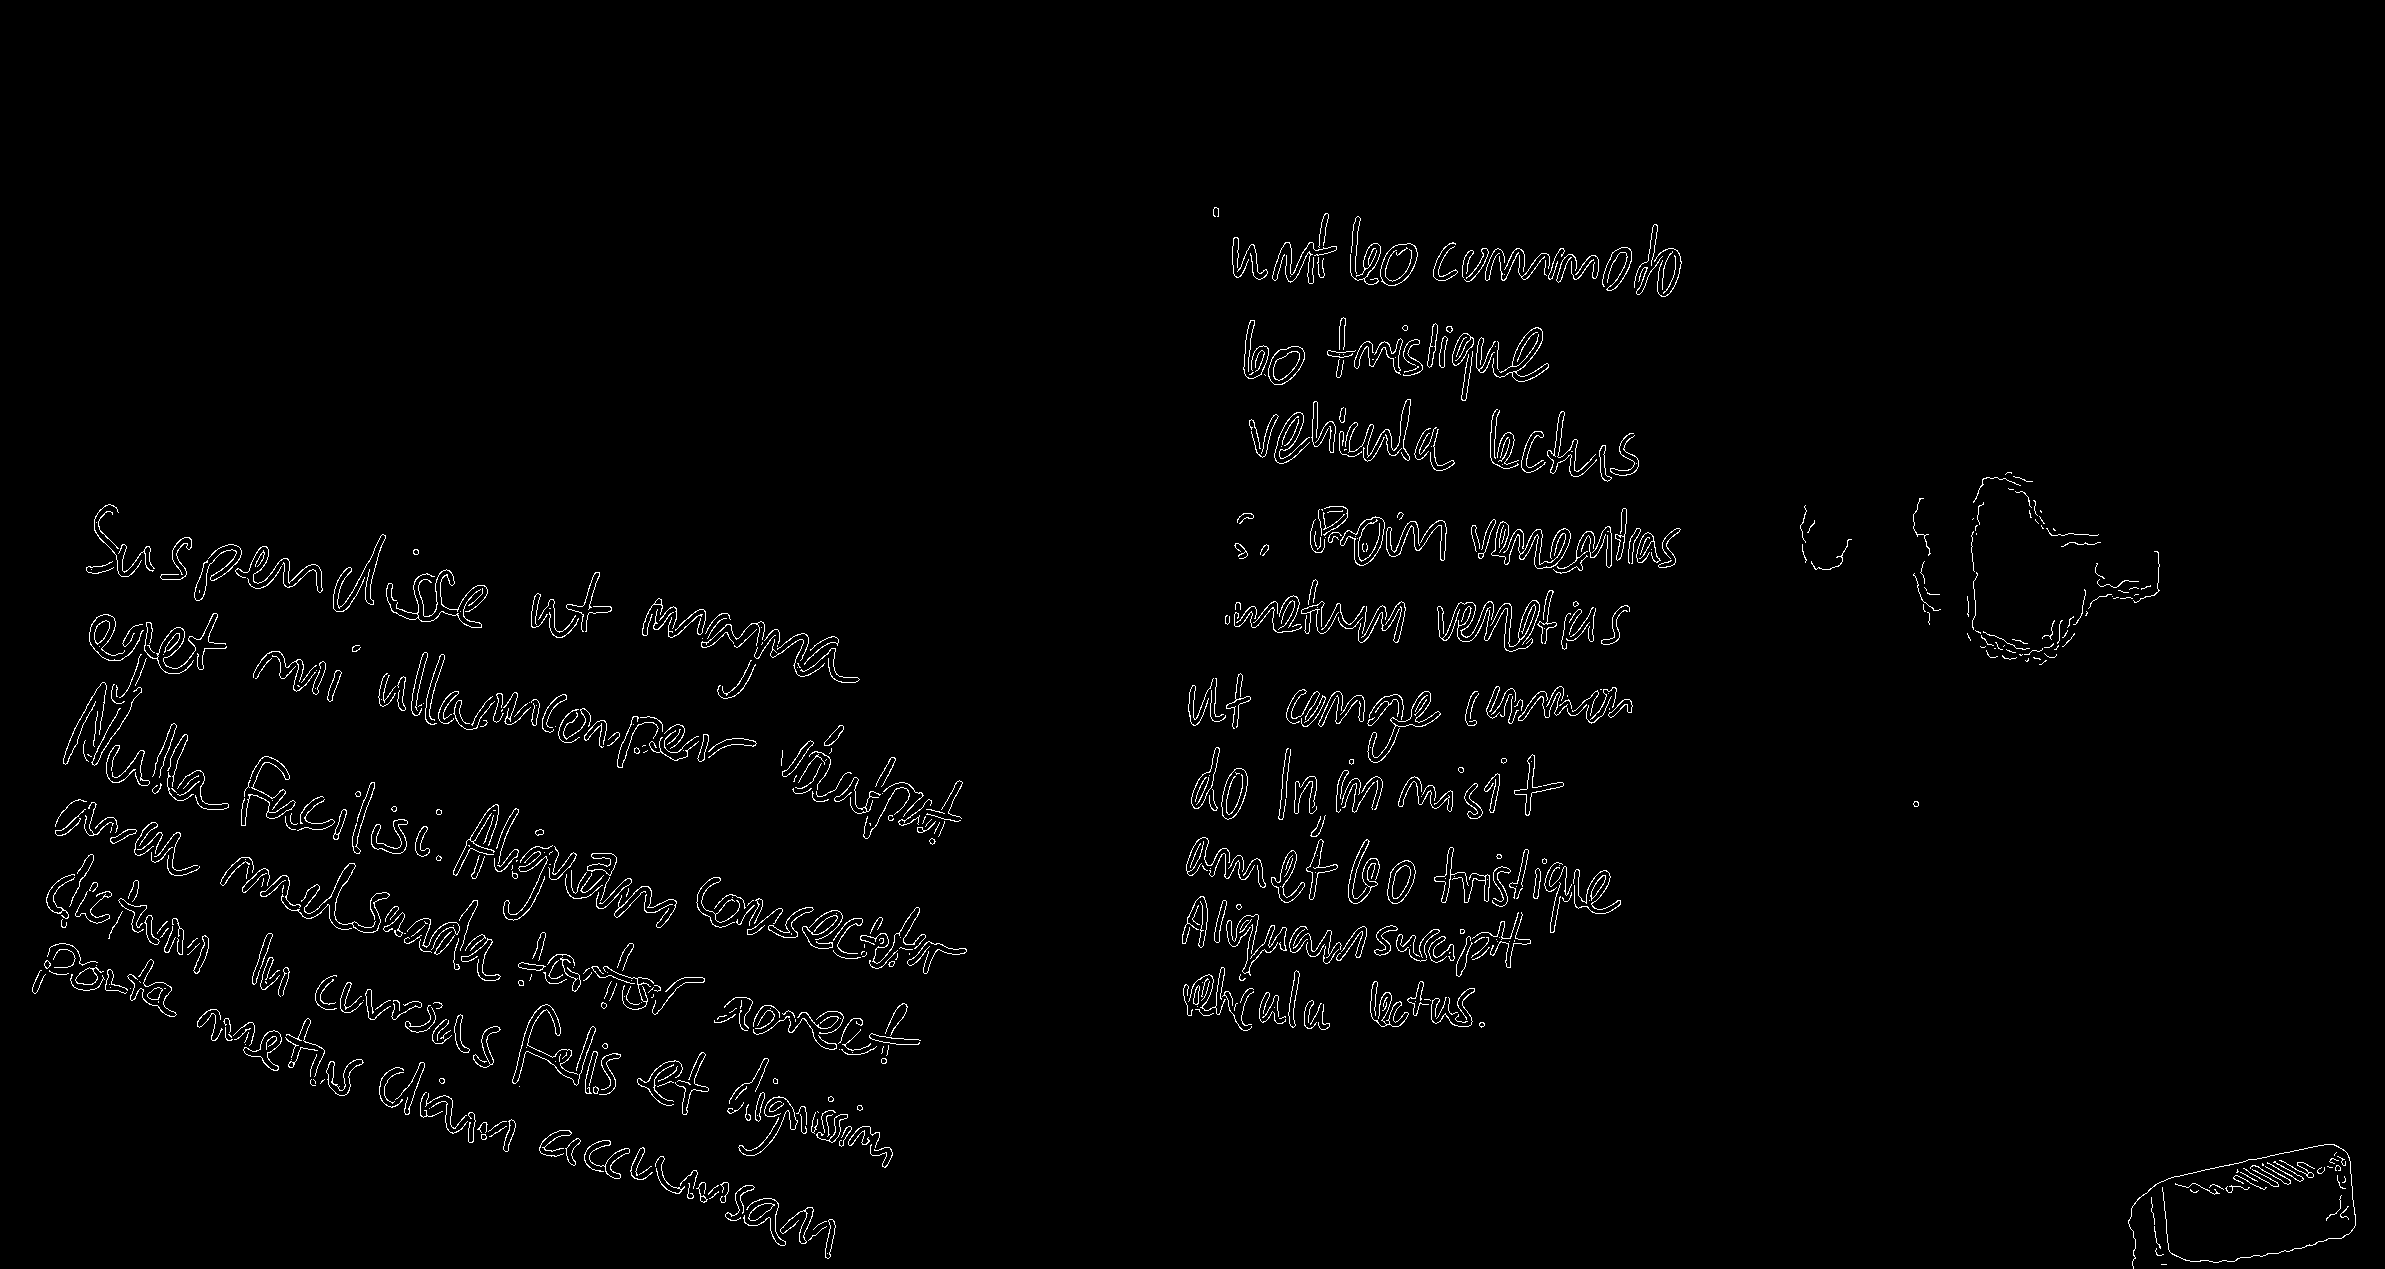 Suspendisse ut magna
eget mi ullamcorper volutpat
Nulla Facilisi. Aliquam consectetur
arcu malesuada tortor
dictum In cursus felis et dignissim
porta metus accumsan
ut leo commodo
leo tristique
vehicula lectus
Proin
metum
ut congue common
do In in nisi t
amet leo tristique
Aliquam suscipit
vehicula lectus.